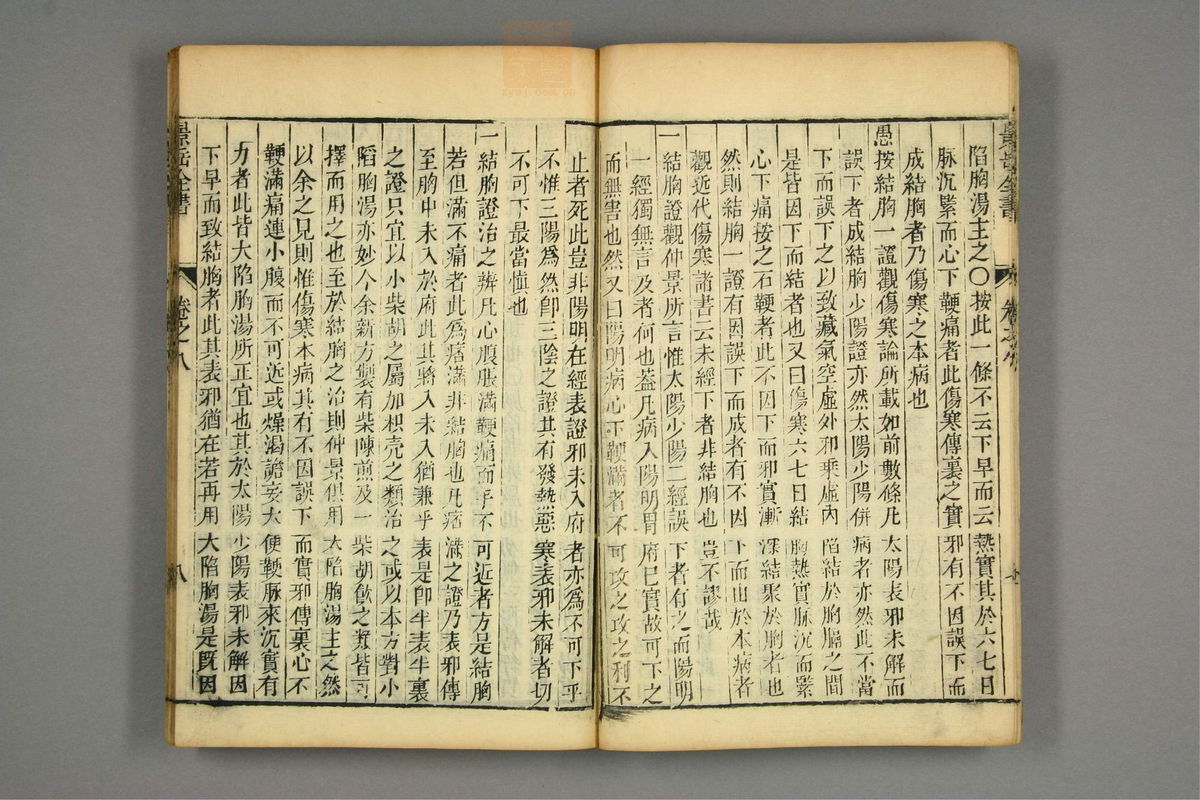 景岳全書
陷胸湯主之○按此一條不云下早而云熱實其於六七日
脉沉緊而心下鞕痛者此傷寒傳裏之實邪有不因誤下而
成結胸者乃傷寒之本病也
愚按結胸一證觀傷寒論所載如前數條凡太陽表邪未解而
誤下者成結胸少陽證亦然太陽少陽併病者亦然此不當
下而誤下之以致藏氣空虛外邪乘虛內陷結於胸膈之間
是皆因下而結者也又曰傷寒六七日結胸熱實脉沉而緊
心下痛按之石鞕者此不因下而邪實漸深結聚於胸者也
然則結胸一證有因誤下而成者有不因下而由於本病者
觀近代傷寒諸書云未經下者非結胸也豈不謬哉
一結胸證觀仲景所言惟太陽少陽二經誤下者有之而陽明
一經獨無言及者何也蓋凡病入陽明胃府已實故可下之
而無害也然又曰陽明病心下鞕滿者不可攻之攻之利不
止者死此豈非陽明在經表證邪未入府者亦為不可下乎
不惟三陽為然卽三陰之證其有發熱惡寒表邪未解者切
不可下最當慎也
一結胸證治之辨凡心腹脹滿鞕痛而手不可近者方是結胸
若但滿不痛者此為痞滿非結胸也凡痞滿之證乃表邪傳
至胸中未入於府此其將入未入猶兼乎表是卽半表半裏
之證只宜以小柴胡之屬加枳壳之類治之或以本方對小
陷胸湯亦妙今余新方製有柴陳煎及一柴胡飲之類皆可
擇而用之也至於結胸之治則仲景俱用大陷胸湯主之然
以余之見則惟傷寒本病其有不因誤下而實邪傳裏心下
鞕滿痛連小腹而不可近或燥渴譫妄大便鞕脉來沉實有
力者此皆大陷胸湯所正宜也其於太陽少陽表邪未解因
下早而致結胸者此其表邪猶在若再用大陷胸湯是既因
景岳全書
卷之八
八